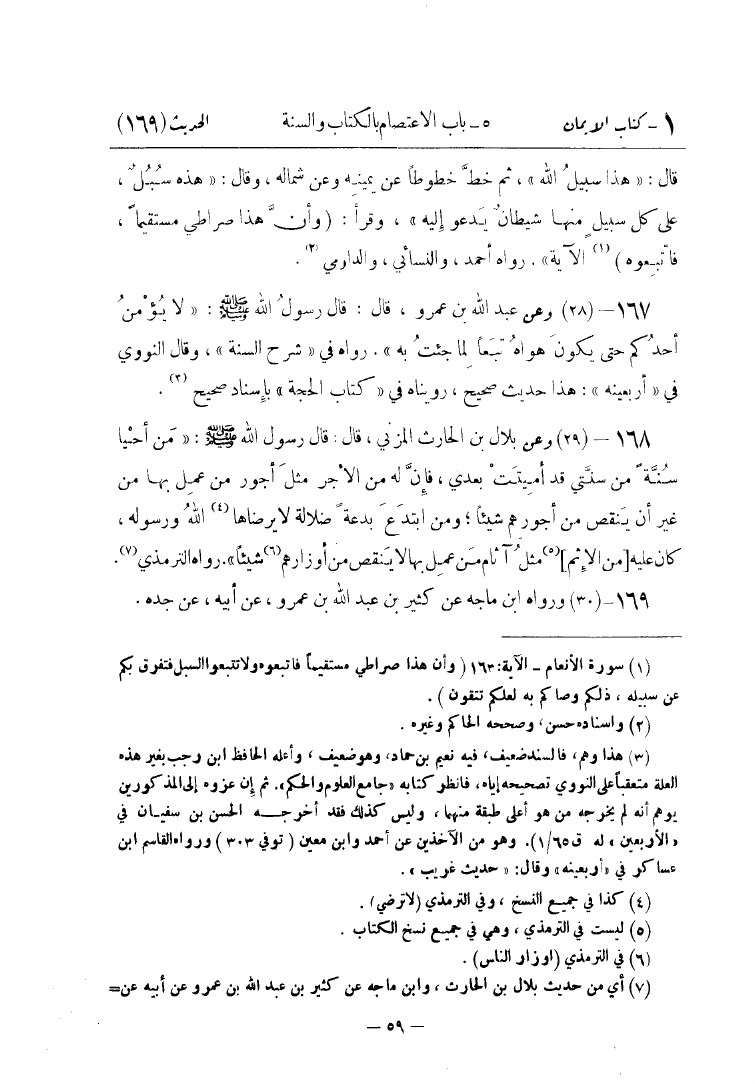 ١ - كتاب الايمان ٥ - باب الاعتصام بالكتاب والسنة الحديث (١٦٩)
قال : « هذا سبيلُ الله » ، ثم خطَّ خطوطاً عن يمينه وعن شماله ، وقال : « هذه سُبُلٌ ،
على كل سبيلٍ منها شيطانٌ يَدعو إليه » ، وقرأ : ( وأنَّ هذا صراطي مستقيماً ،
فاتَّبعوه ) (١) الآية» . رواه أحمد ، والنسائي ، والدارمي (٢) .
١٦٧ – (٢٨) وعن عبد الله بن عمرو ، قال : قال رسولُ الله ﷺ : « لا يُؤْمنُ
أحدُكم حتى يكونَ هواهُ تَبَعاً لما جئتُ به » . رواه في « شرح السنة » ، وقال النووي
في « أربعينه » : هذا حديث صحيح ، رويناه في « كتاب الحجة » بإسناد صحيح (٣) .
١٦٨ – (٢٩) وعن بلال بن الحارث المزني ، قال : قال رسول الله ﷺ : « مَن أحْيا
سُنَّةً من سنتي قد أميتَتْ بعدي ، فإنَّ له من الأجر مثلَ أجور من عمل بها من
غير أن يَنقص من أجورهم شيئاً ؛ ومن ابتدَعَ بدعةً ضلالة لا يرضاها(٤) اللهُ ورسوله ،
كان عليه [من الإثم](٥) مثلُ آثام مَن عمل بها لا يَنقص من أوزارهم(٦) شيئاً» . رواه الترمذي(٧) .
١٦٩ – (٣٠) ورواه ابن ماجه عن كثير بن عبد الله بن عمرو ، عن أبيه ، عن جده .
(١) سورة الأنعام – الآية : ١٦٣ ( وأن هذا صراطي مستقيماً فاتبعوه ولا تتبعوا السبل فتفرق بكم
عن سبيله ، ذلكم وصاكم به لعلكم تتقون ) .
(٢) واسناده حسن ، وصححه الحاكم وغيره .
(٣) هذا وهم ، فالسند ضعيف ، فيه نعيم بن حماد ، وهو ضعيف ، وأعله الحافظ ابن رجب بغير هذه
العلة متعقباً على النووي تصحيحه إياه ، فانظر كتابه «جامع العلوم والحكم» . ثم إن عزوه إلى المذكورين
يوهم أنه لم يخرجه من هو أعلى طبقة منهما ، وليس كذلك فقد أخرجه الحسن بن سفيان في
«الأربعين» له ق ١/٦٥) . وهو من الآخذين عن أحمد وابن معين ( توفي ٣٠٣ ) ورواه القاسم ابن
عساكر في «أربعينه» وقال : « حديث غريب » .
(٤) كذا في جميع النسخ ، وفي الترمذي (لا ترضي) .
(٥) ليست في الترمذي ، وهي في جميع نسخ الكتاب .
(٦) في الترمذي (اوزار الناس) .
(٧) أي من حديث بلال بن الحارث ، وابن ماجه عن كثير بن عبد الله بن عمرو عن أبيه عن=
– ٥٩ –